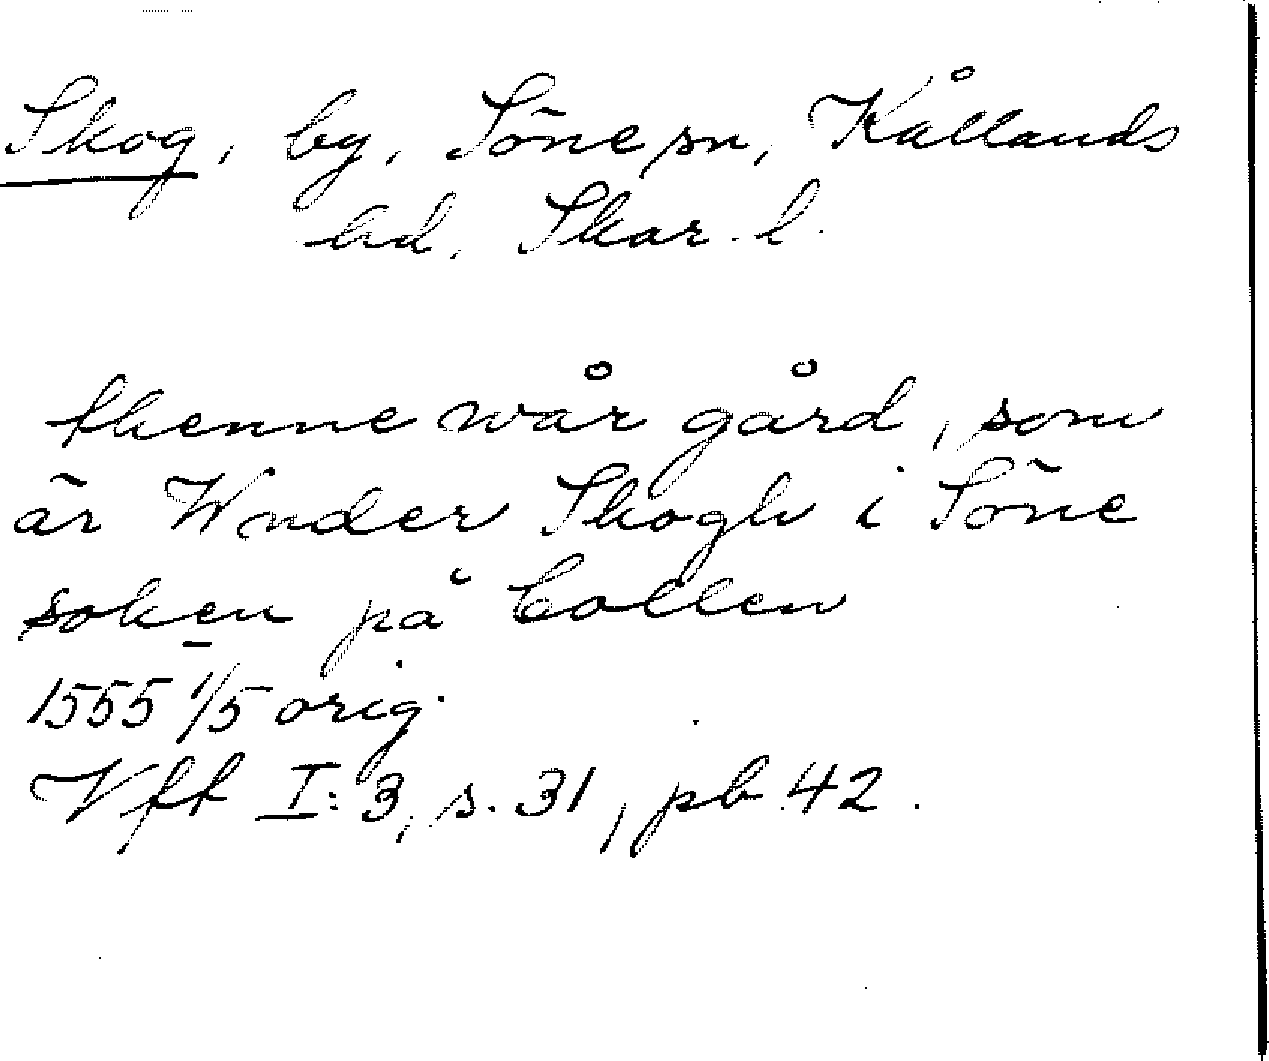 Skog, by, Söne sn, Kållands
hd, Skar. l.
thenne wår gård, som
är Wnder Skogh i Söne
soken på Collen
1555 1/5 orig.
Vff I:3, s. 31, pb 42.